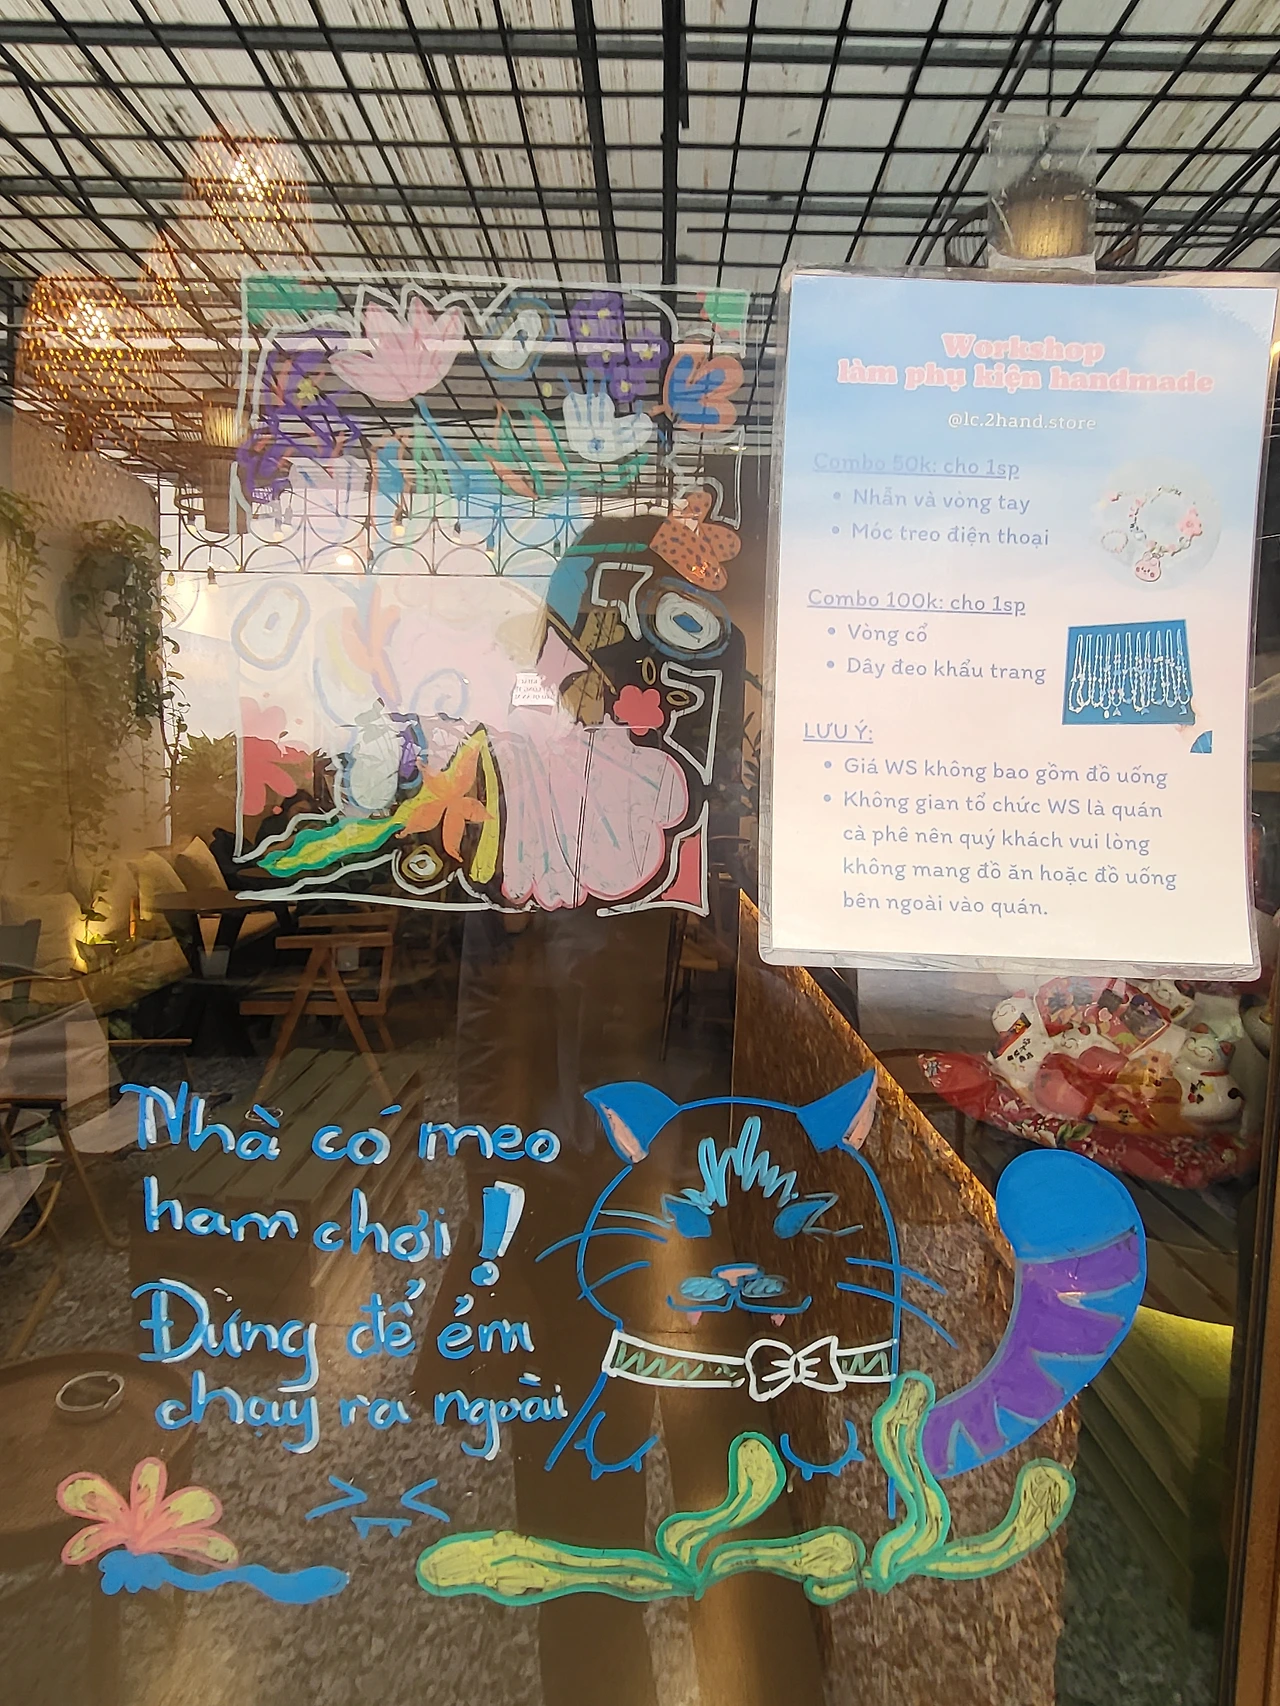 Workshop
làm phụ kiện handmade
@lc.2hand.store
Combo 50k: cho 1sp
• Nhẫn và vòng tay
• Móc treo điện thoại
Combo 100k: cho 1sp
• Vòng cổ
• Dây đeo khẩu trang
LƯU Ý:
• Giá WS không bao gồm đồ uống
• Không gian tổ chức WS là quán
cà phê nên quý khách vui lòng
không mang đồ ăn hoặc đồ uống
bên ngoài vào quán.
Nhà có meo
ham chơi!
Đừng để ẻm
chạy ra ngoài